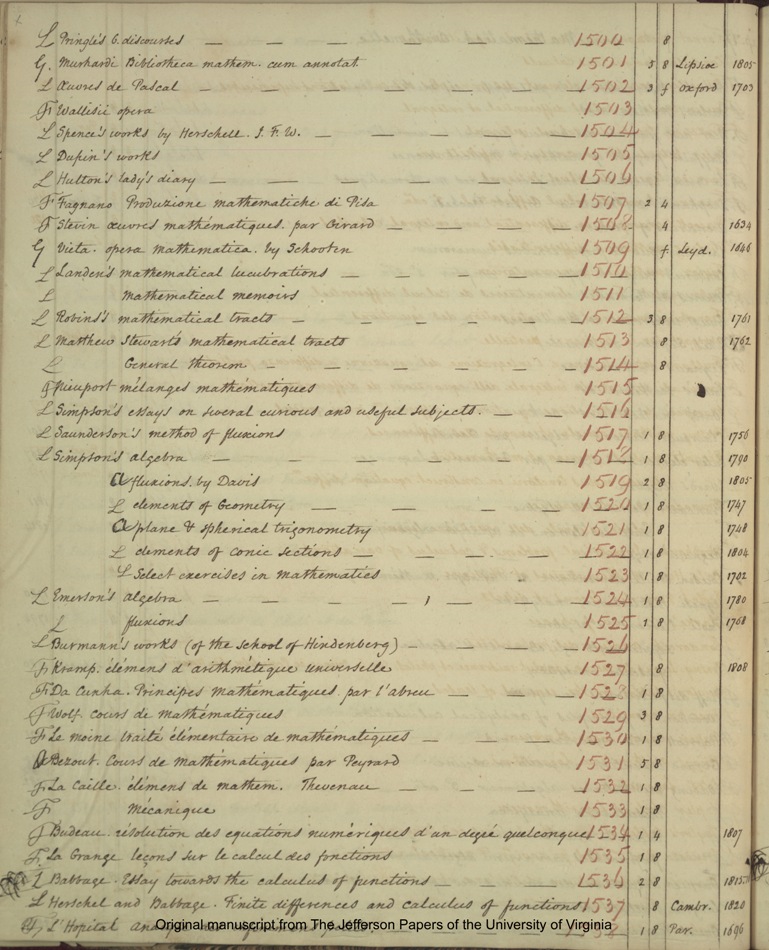 L Pringle's 6. discourses — 1500 8
G. Murhardi Bibliotheca mathem. cum annotat. 1501 5 8 Lipsiae 1805
L Œuvres de Pascal — 1502 3 f Oxford 1703
F Wallisii opera 1503
L Spence's works by Herschell. J. F. W. — 1504
L Dupin's works 1505
L Hutton's lady's diary — 1506
F Fagnano Produzione mathematiche di Pisa 1507 2 4
F Stevin œuvres mathématiques. par Girard — 1508 4 1634
G Vieta. opera mathematica. by Schooten 1509 f. Leyd. 1646
L Landen's mathematical lucubrations — 1510
L mathematical memoirs 1511
L Robins's mathematical tracts — 1512 3 8 1761
L Matthew Stewart's mathematical tracts 1513 8 1762
L General theorem — 1514 8
F Nieuport mélanges mathématiques 1515
L Simpson's essays on several curious and useful subjects. — 1516
L Saunderson's method of fluxions 1517 1 8 1756
L Simpson's algebra — 1518 1 8 1790
a fluxions. by Davis 1519 2 8 1805
L elements of Geometry — 1520 1 8 1747
a plane & spherical trigonometry 1521 1 8 1748
L elements of conic sections — 1522 1 8 1804
L Select exercises in mathematics 1523 1 8 1792
L Emerson's algebra — 1524 1 8 1780
L fluxions 1525 1 8 1768
L Burmann's works (of the school of Hindenberg) — 1526
F Kramp. élémens d'arithmétique universelle 1527 8 1808
F. Da Cunha. Principes mathématiques par l'abreu — 1528 1 8
F Wolf. cours de mathématiques 1529 3 8
F Le moine traité élémentaire de mathématiques — 1530 1 8
a Bezout. Cours de mathématiques par Peyrard 1531 5 8
F. La Caille. élémens de mathem. Thevenau — 1532 1 8
F Mécanique 1533 1 8
F Budeau. résolution des equations numériques d'un degré quelconque 1534 1 4 1807
F. La Grange leçons sur le calcul des fonctions 1535 1 8
L Babbage. Essay towards the calculus of functions — 1536 2 8 1815
L Herschel and Babbage. Finite differences and calculus of functions 1537 8 Cambr. 1820
L'Hopital 1 8 Par. 1696
Original manuscript from The Jefferson Papers of the University of Virginia